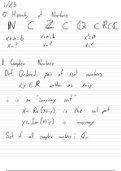 1/23
0 Hierarchy of Numbers
ℕ ⊂ ℤ ⊂ ℚ ⊂ ℝ ⊂ ℂ
x=?
x=?
x=?
1. Complex Numbers
Def Ordered pair of real numbers
x,y ∈ ℝ written as x+iy
i is an "imaginary unit"
x = Re(x+iy) is the real part
y = Im(x+iy) is the imaginary
Set of all complex numbers: ℂ